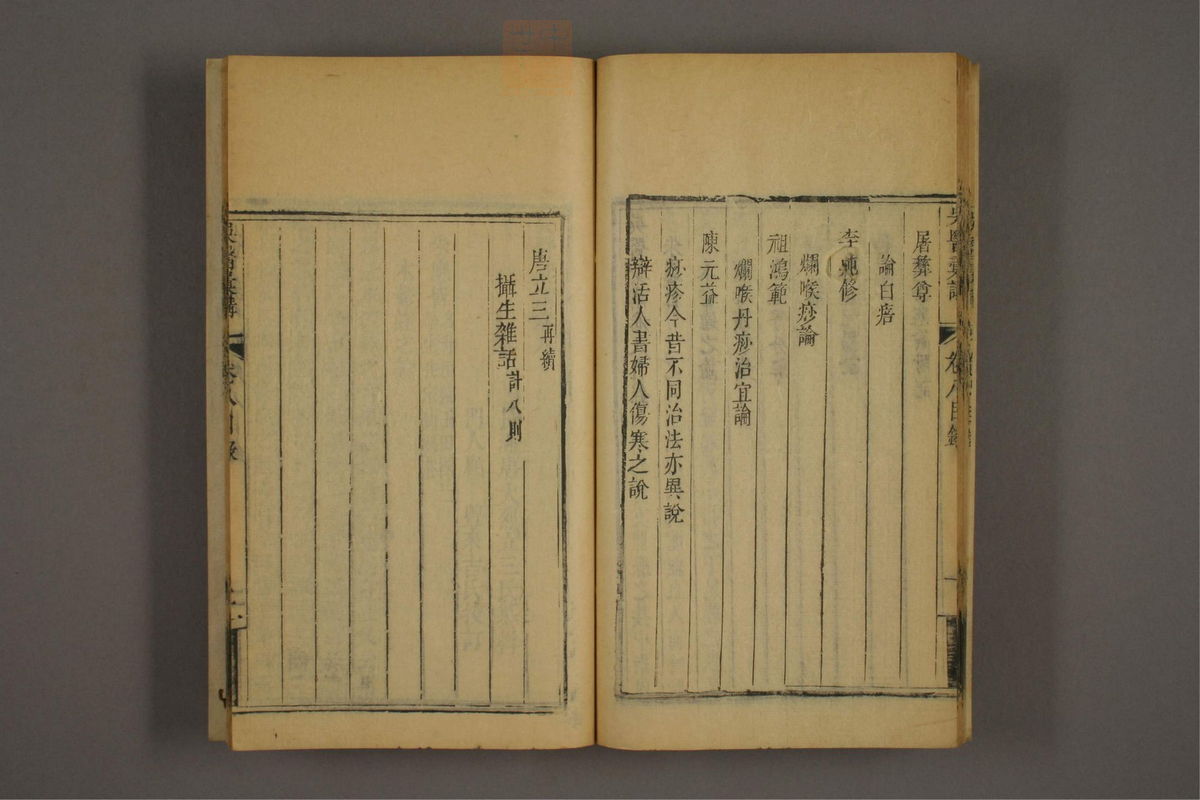 吳醫彙講
卷八目錄
屠彝尊
論白㾦
李純修
爛喉痧論
祖鴻範
爛喉丹痧治宜論
陳元益
痧疹今昔不同治法亦異說
辯活人書婦人傷寒之說
唐立三再續
攝生雜話計八則
吳醫彙講
卷八目錄